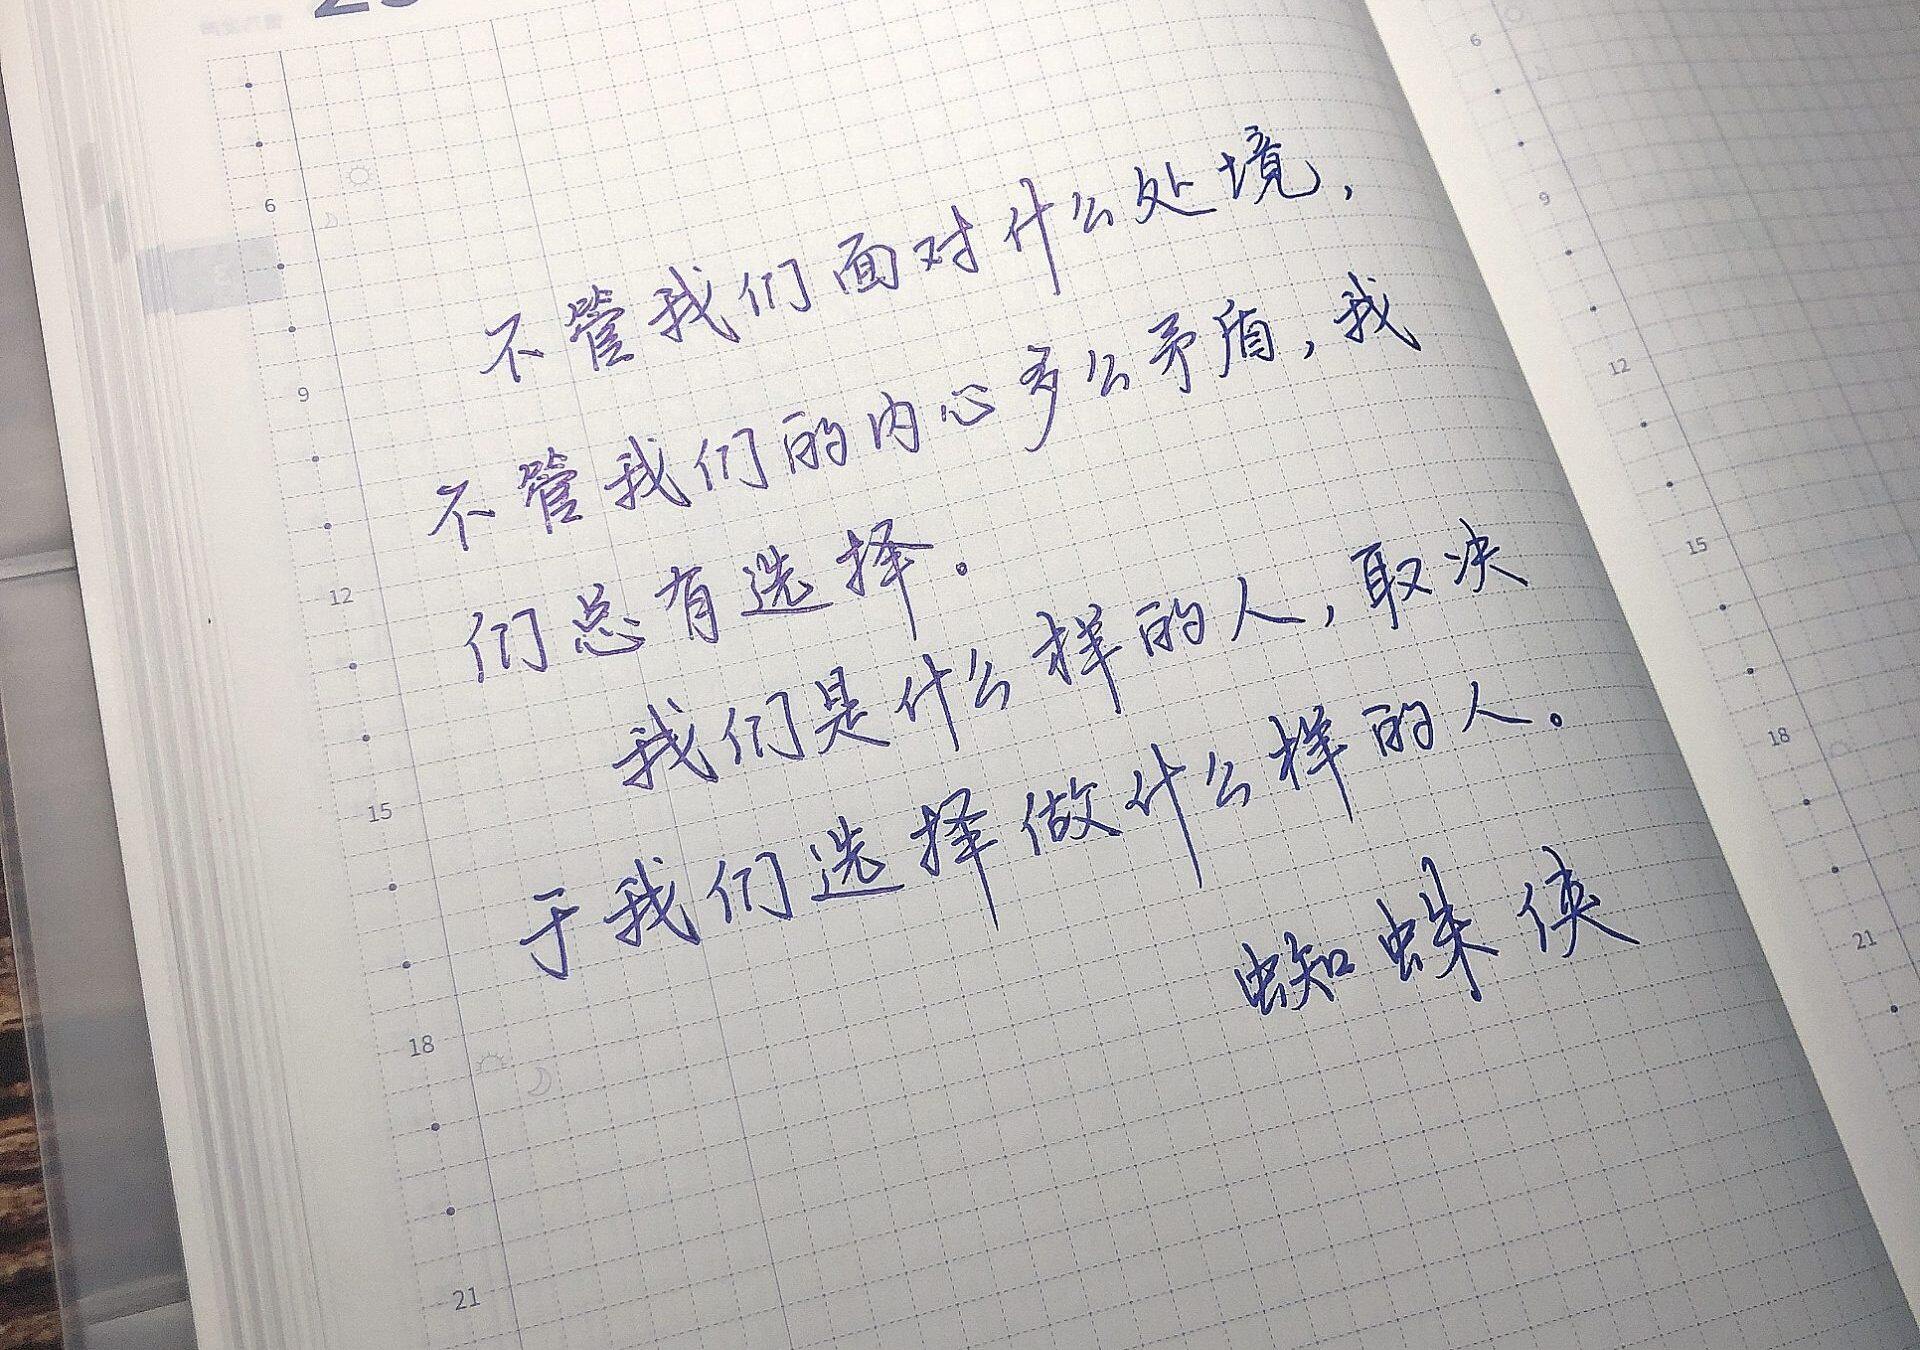 6
9
12
15
18
21
不管我们面对什么处境,
不管我们的内心多么矛盾,我
们总有选择.
我们是什么样的人,取决
于我们选择做什么样的人。
蜘蛛侠
6
9
12
15
18
21